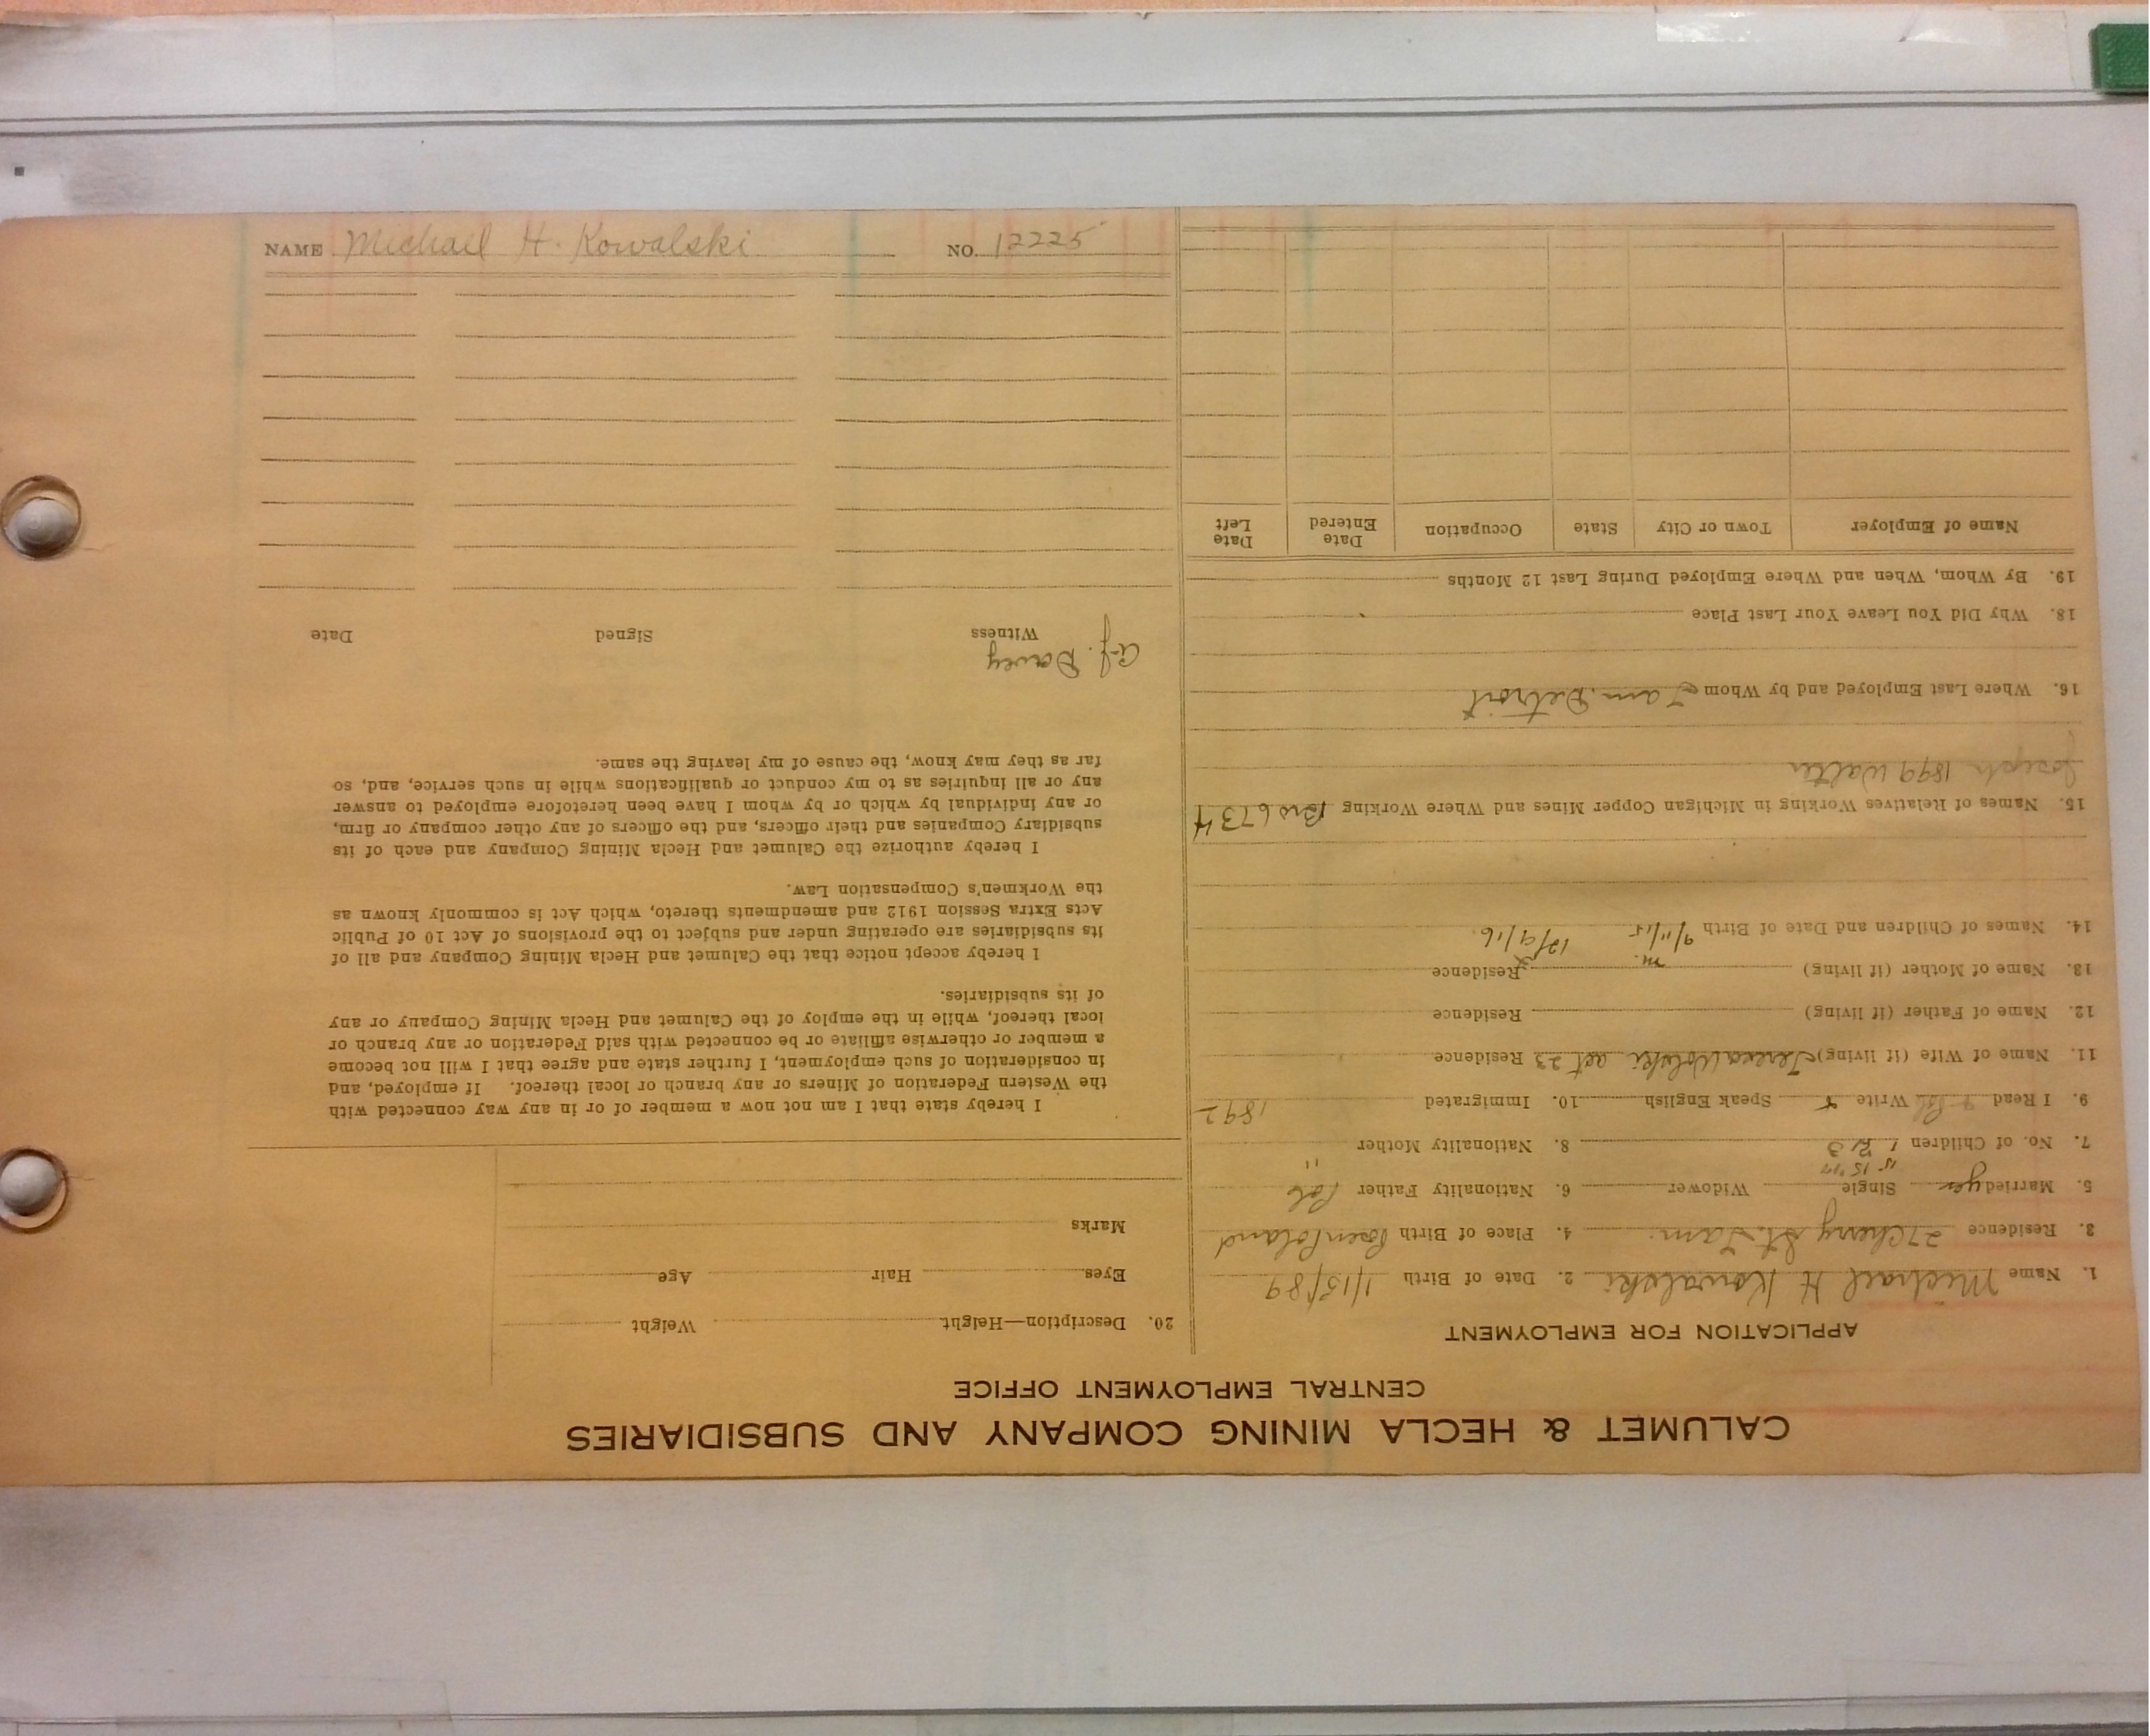 CALUMET & HECLA MINING COMPANY AND SUBSIDIARIES
CENTRAL EMPLOYMENT OFFICE
APPLICATION FOR EMPLOYMENT
1. Name Michael H Kowalski 2. Date of Birth 1/15/89
3. Residence 27 Cherry St. Lam. 4. Place of Birth Posen Poland
5. Married yes Single Widower 6. Nationality Father Pol
15 15 17
7. No. of Children 1 2 3 8. Nationality Mother "
9. I Read Write Speak English 10. Immigrated 1892
11. Name of Wife (if living) Wolski aet 23 Residence
12. Name of Father (if living) Residence
13. Name of Mother (if living) Residence
m.
14. Names of Children and Date of Birth 9/11/15 12/9/16
15. Names of Relatives Working in Michigan Copper Mines and Where Working Bro 6734
Joseph 1899 Walter
16. Where Last Employed and by Whom Detroit
18. Why Did You Leave Your Last Place
19. By Whom, When and Where Employed During Last 12 Months
Name of Employer Town or City State Occupation Date Entered Date Left
20. Description—Height Weight
Eyes Hair Age
Marks
I hereby state that I am not now a member of or in any way connected with
the Western Federation of Miners or any branch or local thereof. If employed, and
in consideration of such employment, I further state and agree that I will not become
a member or otherwise affiliate or be connected with said Federation or any branch or
local thereof, while in the employ of the Calumet and Hecla Mining Company or any
of its subsidiaries.
I hereby accept notice that the Calumet and Hecla Mining Company and all of
its subsidiaries are operating under and subject to the provisions of Act 10 of Public
Acts Extra Session 1912 and amendments thereto, which Act is commonly known as
the Workmen's Compensation Law.
I hereby authorize the Calumet and Hecla Mining Company and each of its
subsidiary Companies and their officers, and the officers of any other company or firm,
or any individual by which or by whom I have been heretofore employed to answer
any or all inquiries as to my conduct or qualifications while in such service, and, so
far as they may know, the cause of my leaving the same.
A.J. Davey
Witness Signed Date
NAME Michael H. Kowalski NO. 12225